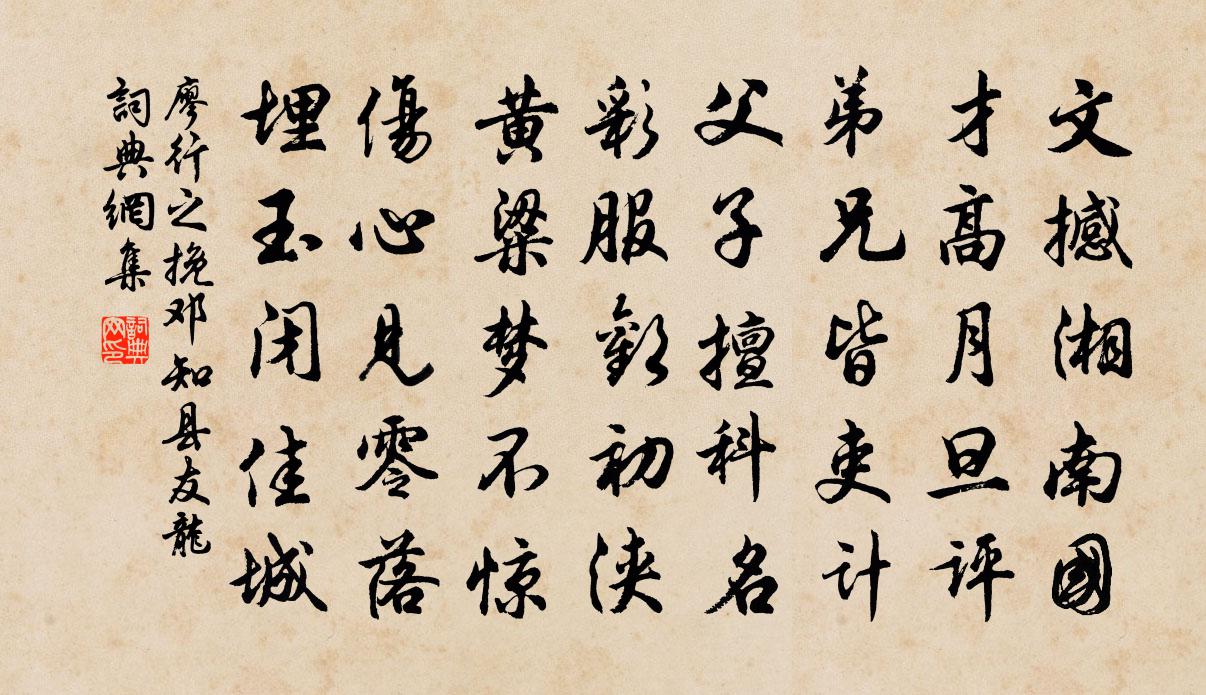 文撼湘南國
才高月旦評
弟兄皆吏計
父子擅科名
彩服歡初浹
黄粱梦不惊
傷心見零落
埋玉闭佳城
廖行之挽邓知县友龍
詞典網集
詞典网印